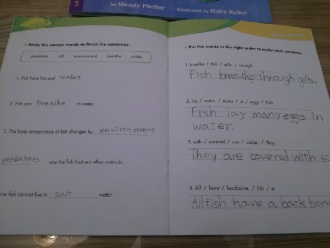 by Wendy Pfeffer
illustrated by Holly Keller
Write the correct words to finish the sentences.
predators salt environment breathe scales
1. Fish have fins and scales
2. Fish can breathe in water.
3. The body temperature of fish changes by environment
predators are the fish that eat other animals.
fish cannot live in salt water.
Put the words in the right order to make each sentence.
1. breathe / fish / gills / through
Fish breathe through gills.
2. lay / water / many / in / eggs / fish
Fish lay many eggs in
water.
3. with / covered / are / scales / they
They are covered with sc
4. All / have / backbone / fish / a
Allfish have a backbone